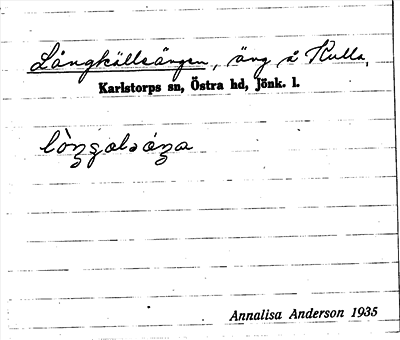 Långkällsängen, äng å Kulla,
Karlstorps sn, Östra hd, Jönk. l.
Annalisa Anderson 1935